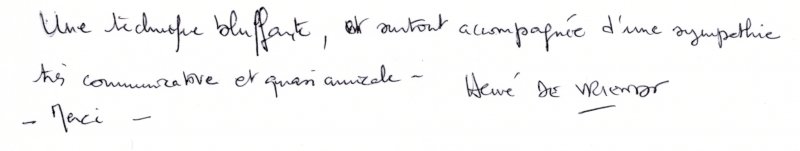 Une technique bluffante, et surtout accompagnée d'une sympathie
très communicative et quasi amicale - Hervé DE VRIENDT
- Merci -